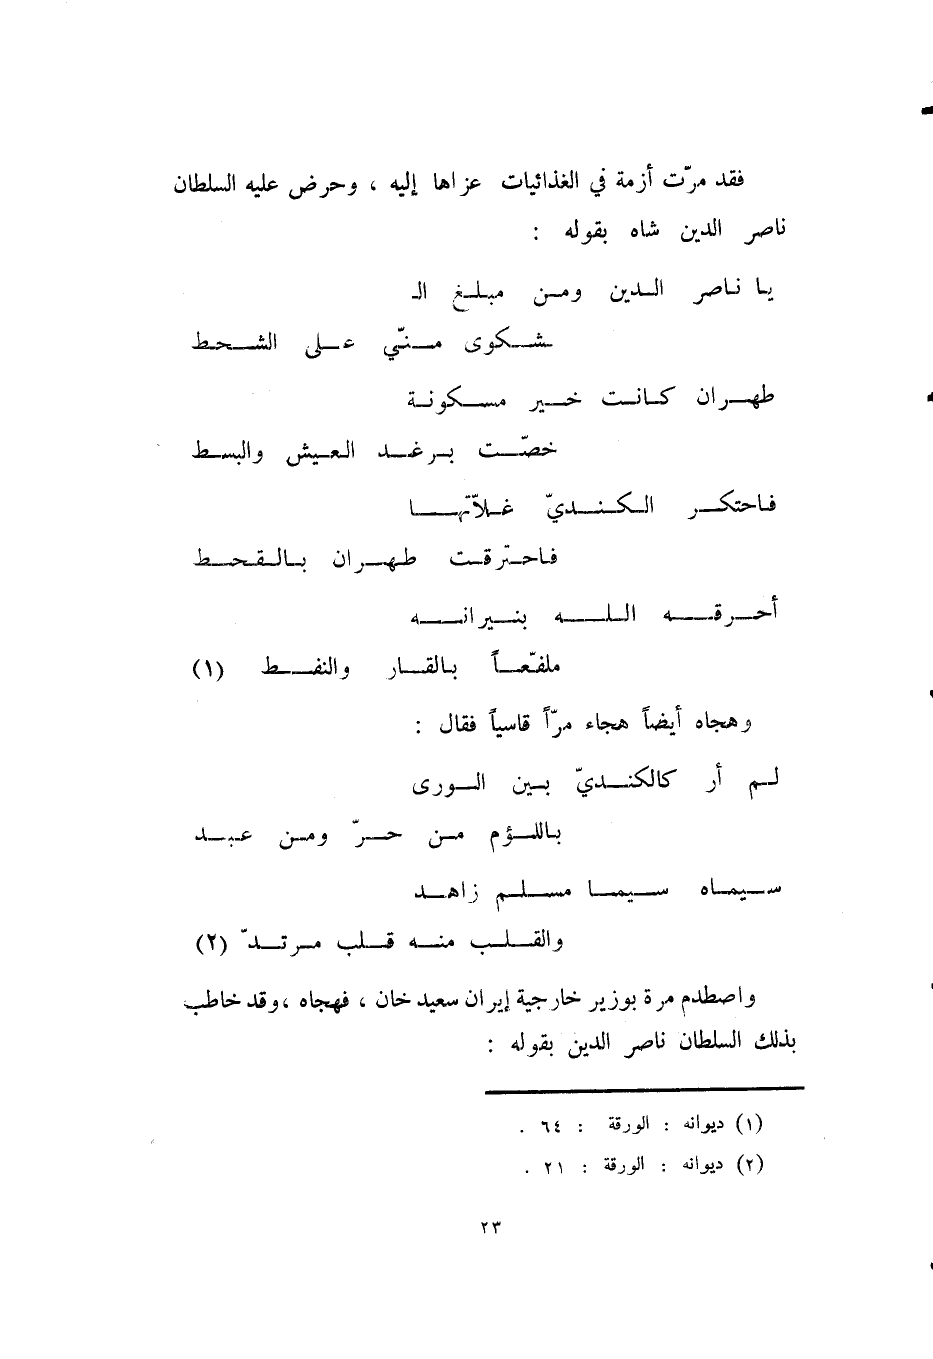 فقد مرّت أزمة في الغذائيات عزاها إليه ، وحرض عليه السلطان
ناصر الدين شاه بقوله :
يا ناصر الدين ومن مبلغ الـ
ـشكوى منّي على الشحط
طهران كانت خير مسكونة
خصّت برغد العيش والبسط
فاحتكر الكنديّ غلاّتها
فاحترقت طهران بالقحط
أحرقه الله بنيرانه
ملفّعاً بالقار والنفط (١)
وهجاه أيضاً هجاء مرّاً قاسياً فقال :
لم أر كالكنديّ بين الورى
باللؤم من حرّ ومن عبد
سيماه سيما مسلم زاهد
والقلب منه قلب مرتدّ (٢)
واصطدم مرة بوزير خارجية إيران سعيد خان ، فهجاه ، وقد خاطب
بذلك السلطان ناصر الدين بقوله :
(١) ديوانه : الورقة : ٦٤ .
(٢) ديوانه : الورقة : ٢١ .
٢٣